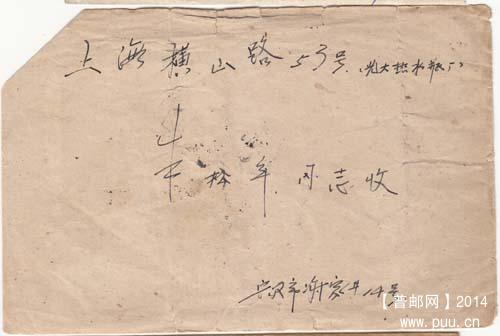 上海横山路53号(光大热水瓶厂)
松年同志收
安汉市谢家井14号
【普邮网】2014
www.puu.cn